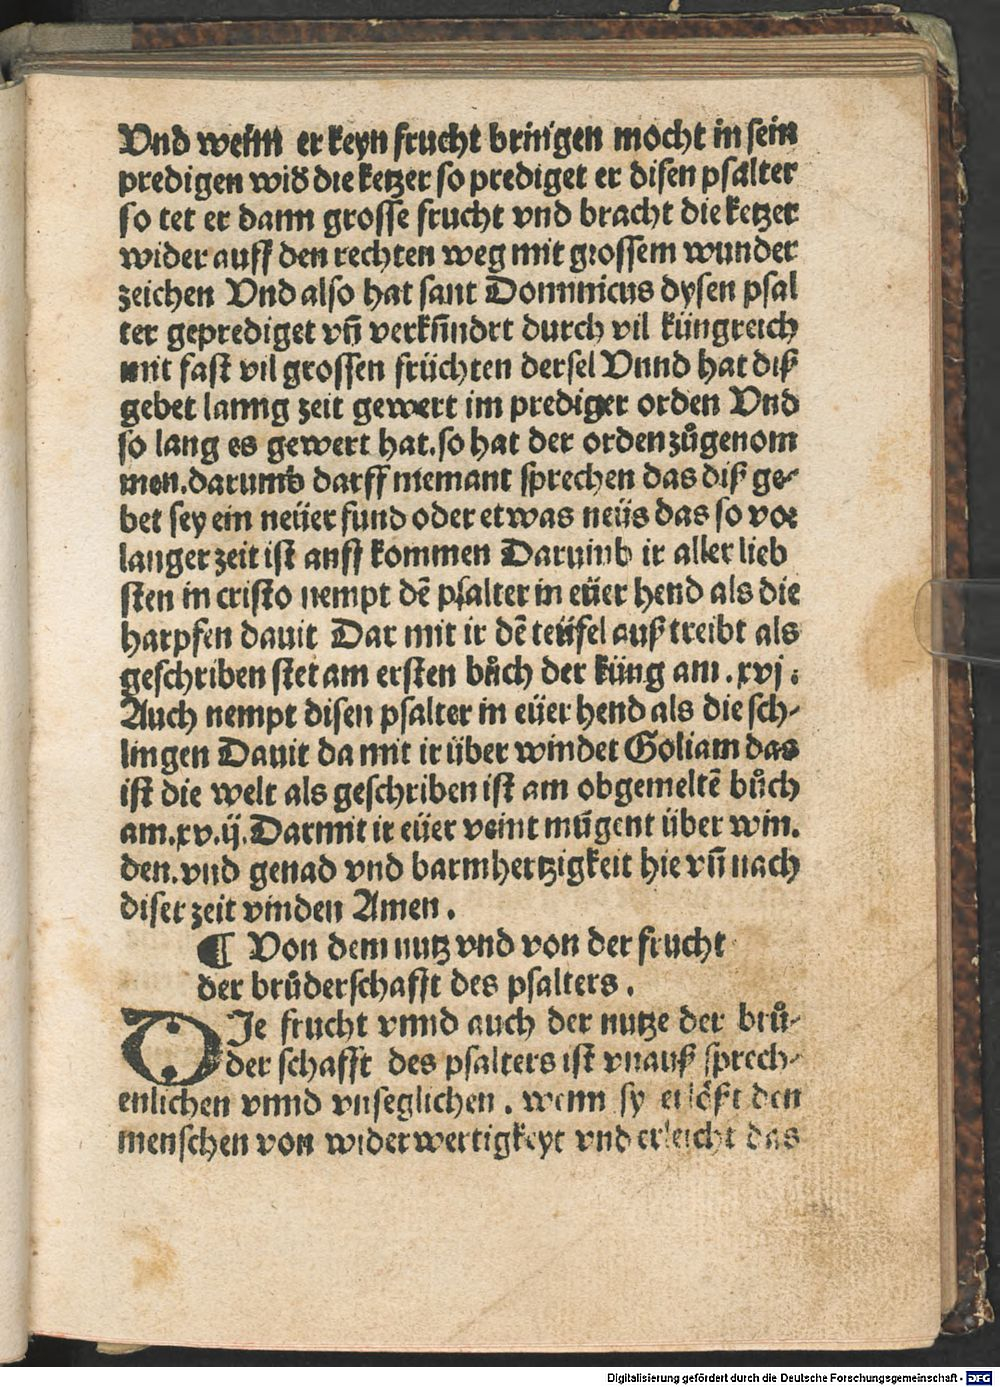 Vnd wenn er keyn frucht bringen mocht in sein
predigen wid̕ die ketzer so prediget er disen psalter
so tet er dann grosse frucht vnd bracht die ketzer
wider auff den rechten weg mit grossem wunder
zeichen Vnd also hat sant Dominicus dysen psal
ter geprediget vn̄ verkündet durch vil küngreich
mit fast vil grossen früchten der sel Vnnd hat diß
gebet lanng zeit gewert im prediger orden Vnd
so lang es gewert hat. so hat der orden zůgenom
men. darumb darff niemant sprechen das diß ge⸗
bet sey ein neüer fund oder etwas neüs das so vor
langer zeit ist auff kommen Darumb ir aller lieb
sten in cristo nempt dē psalter in eüer hend als die
harpfen dauit Dar mit ir dē teüfel auß treibt als
geschriben stet am ersten bůch der küng am .xvj.
Auch nempt disen psalter in eüer hend als die sch⸗
lingen Dauit da mit ir über windet Goliam das
ist die welt als geschriben ist am obgemeltē bůch
am .xv.ij. Darmit ir eüer veint mügent über win.
den. vnd genad vnd barmhertzigkeit hie vn̄ nach
diser zeit vinden Amen.
¶ Von dem nutz vnd von der frucht
der brůderschafft des psalters.
DIe frucht vnnd auch der nutze der brů⸗
der schafft des psalters ist vnauß sprech⸗
enlichen vnnd vnseglichen. wenn sy erlößt den
menschen von widerwertigkeyt vnd erleicht das
Digitalisierung gefördert durch die Deutsche Forschungsgemeinschaft - DFG